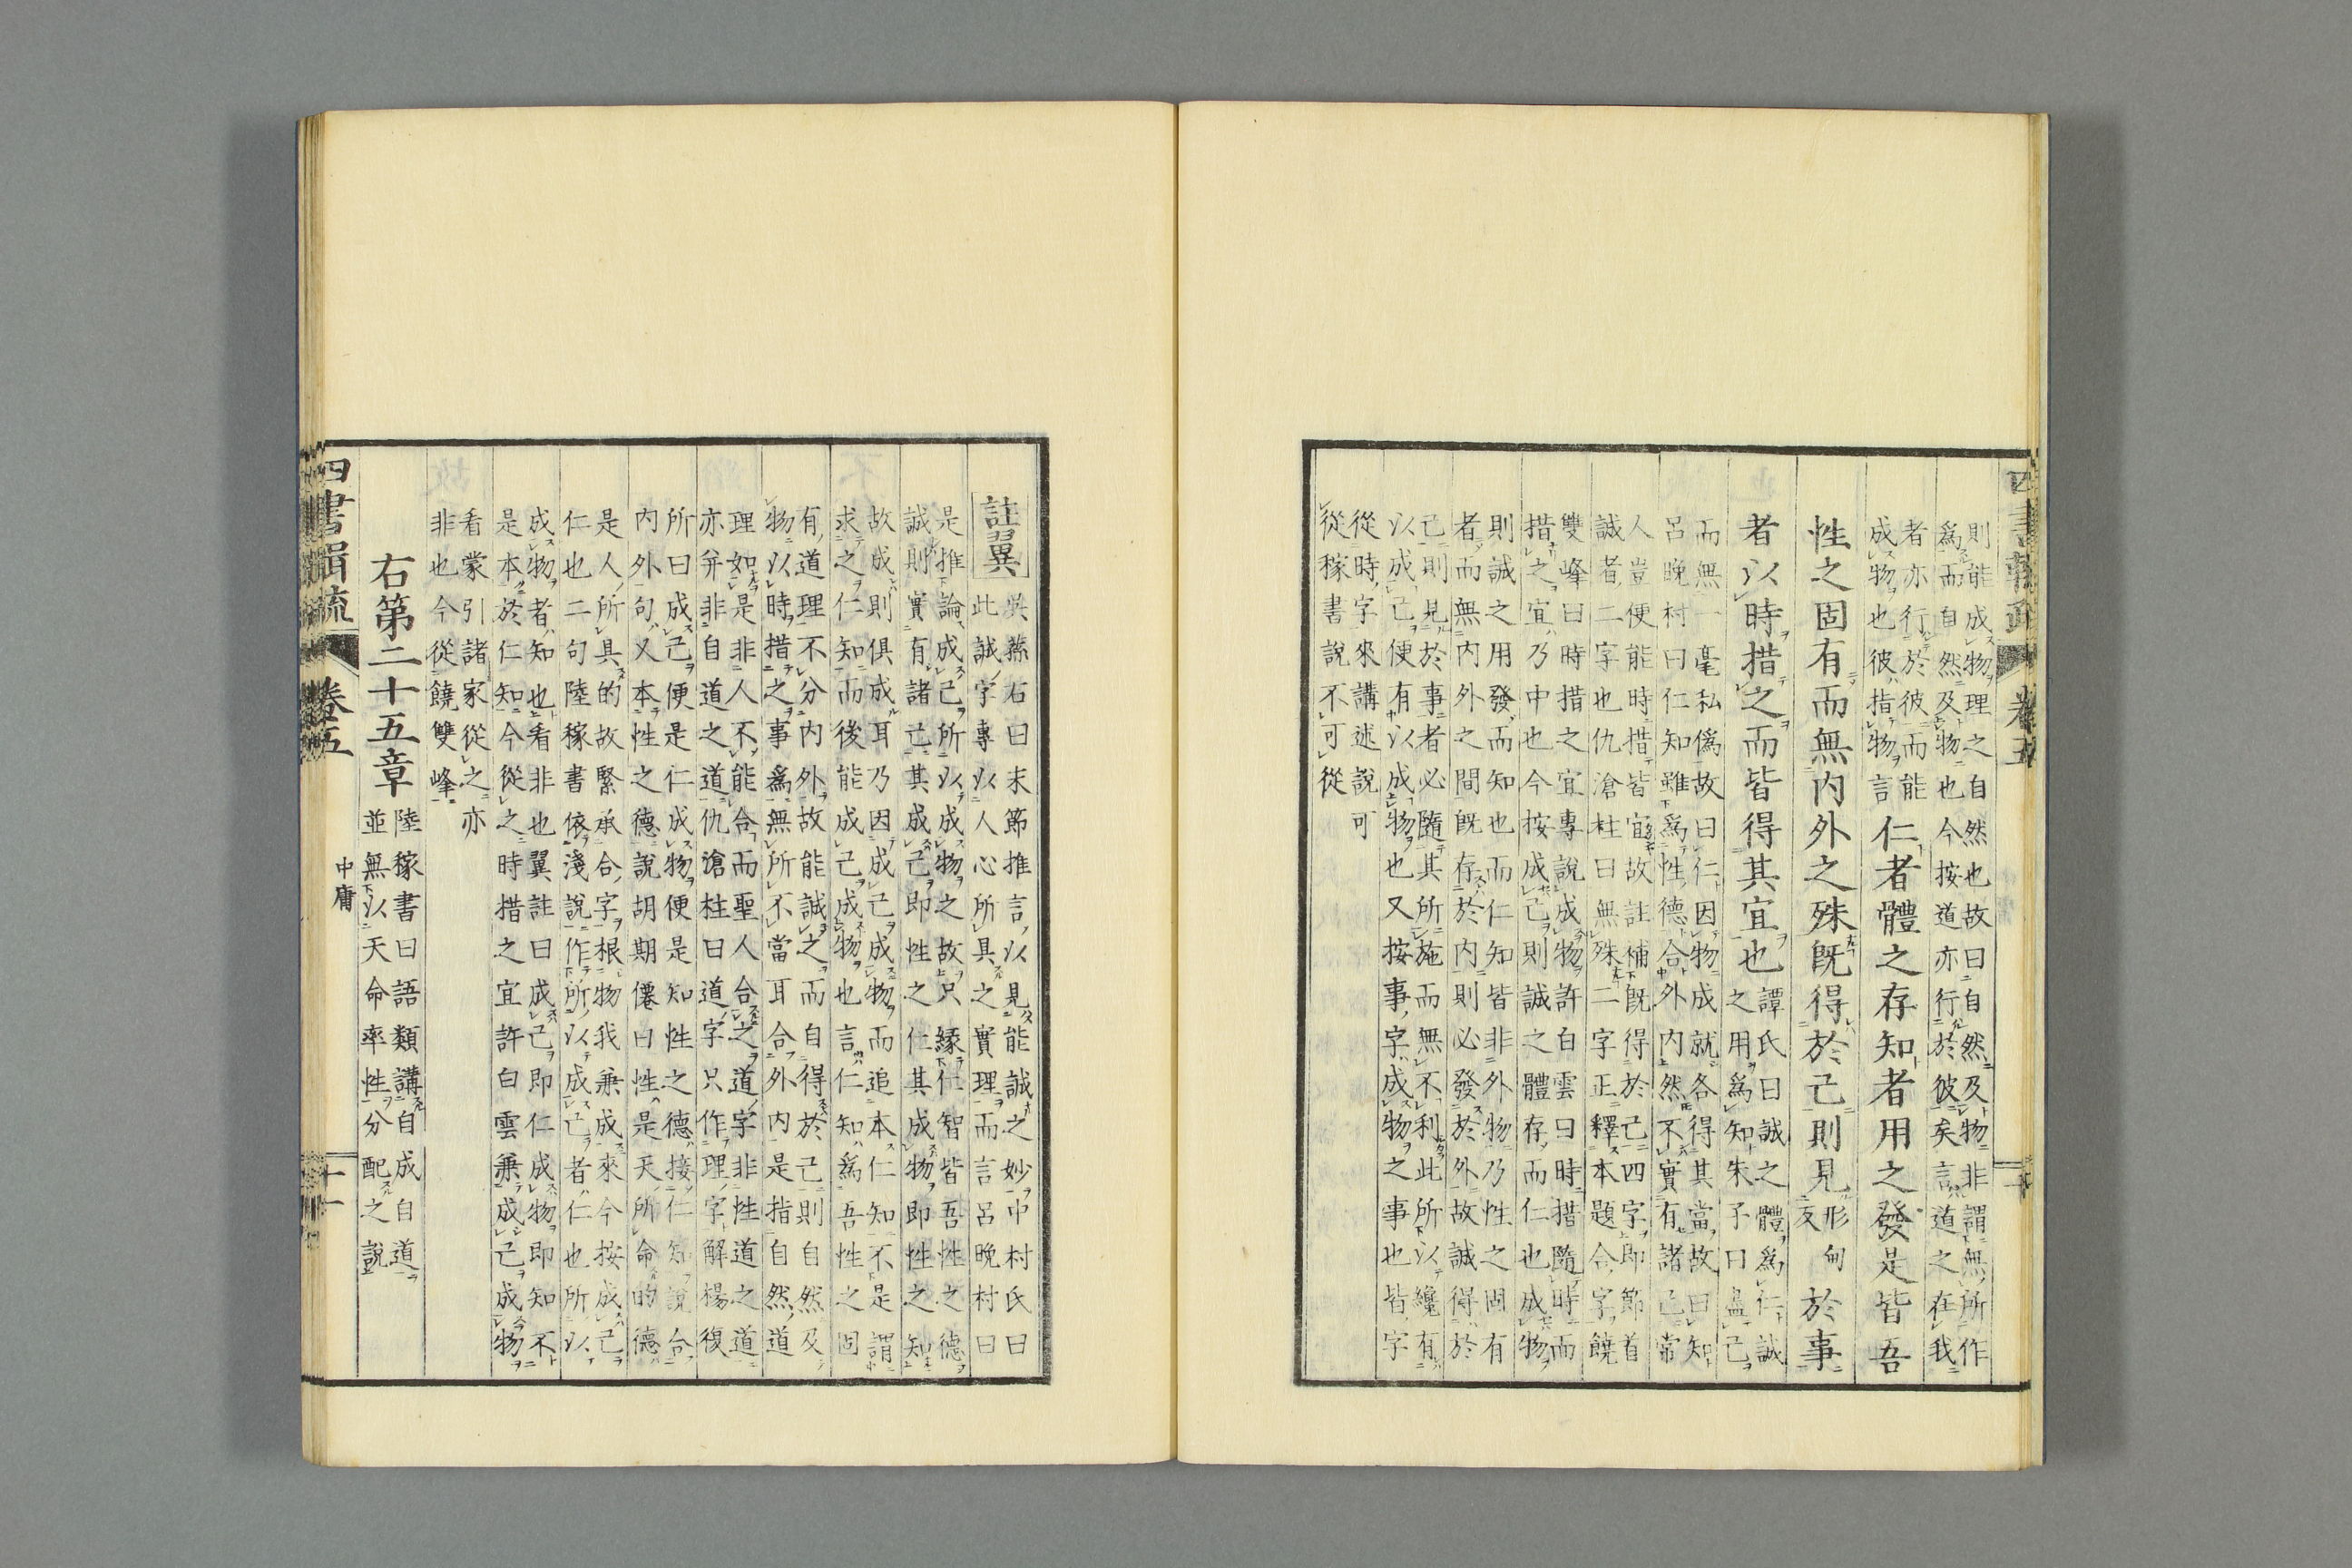 則能成物理之自然也故曰自然及物非謂無所作
爲而自然及物也今按道亦行於彼矣言道之在我
者亦行於彼而能
成物也彼指物言
仁者體之存知者用之發是皆吾
性之固有而無内外之殊既得於己則見形甸反於事
者以時措之而皆得其宜也
譚氏曰誠之體爲仁誠
之用爲知朱子曰盡己
而無一毫私僞故曰仁因物成就各得其當故曰知
呂晚村曰仁知雖爲性德合外内然不實有諸己常
人豈便能時措皆宜故註補既得於己四字即節首
誠者二字也仇滄柱曰無殊二字正釋本題合字饒
雙峰曰時措之宜專說成物許白雲曰時措隨時而
措之宜乃中也今按成己則誠之體存而仁也成物
則誠之用發而知也而仁知皆非外物乃性之固有
者而無内外之間既存於内則必發於外故誠得於
己則見於事者必隨其所施而無不利此所以纔有
以成己便有以成物也又按事字成物之事也皆字
從時字來講述說可
從稼書說不可從
註翼
吳蓀右曰末節推言以見能誠之妙中村氏曰
此誠字專以人心所具之實理而言呂晚村曰
是推論成己所以成物之故只緣仁智皆吾性之德
誠則實有諸己其成己即性之仁其成物即性之知
故成則俱成耳乃因成己成物而追本仁知不是謂
求之仁知而後能成己成物也言仁知爲吾性之固
有道理不分内外故能誠之而自得於己則自然及
物以時措之事爲無所不當耳合外内是指自然道
理如是非人不能合而聖人合之道字非性道之道
亦并非自道之道仇滄柱曰道字只作理字解楊復
所曰成己便是仁成物便是知性之德接仁知說合
内外句又本性之德說胡期僊曰性是天所命的德
是人所具的故緊承合字根物我兼成來今按成己
仁也二句陸稼書依淺說作所以成己者仁也所以
成物者知也看非也翼註曰成己即仁成物即知不
是本於仁知今從之時措之宜許白雲兼成己成物
看蒙引諸家從之亦
非也今從饒雙峰
右第二十五章
陸稼書曰語類講自成自道
並無以天命率性分配之說
四書輯疏 卷五 中庸